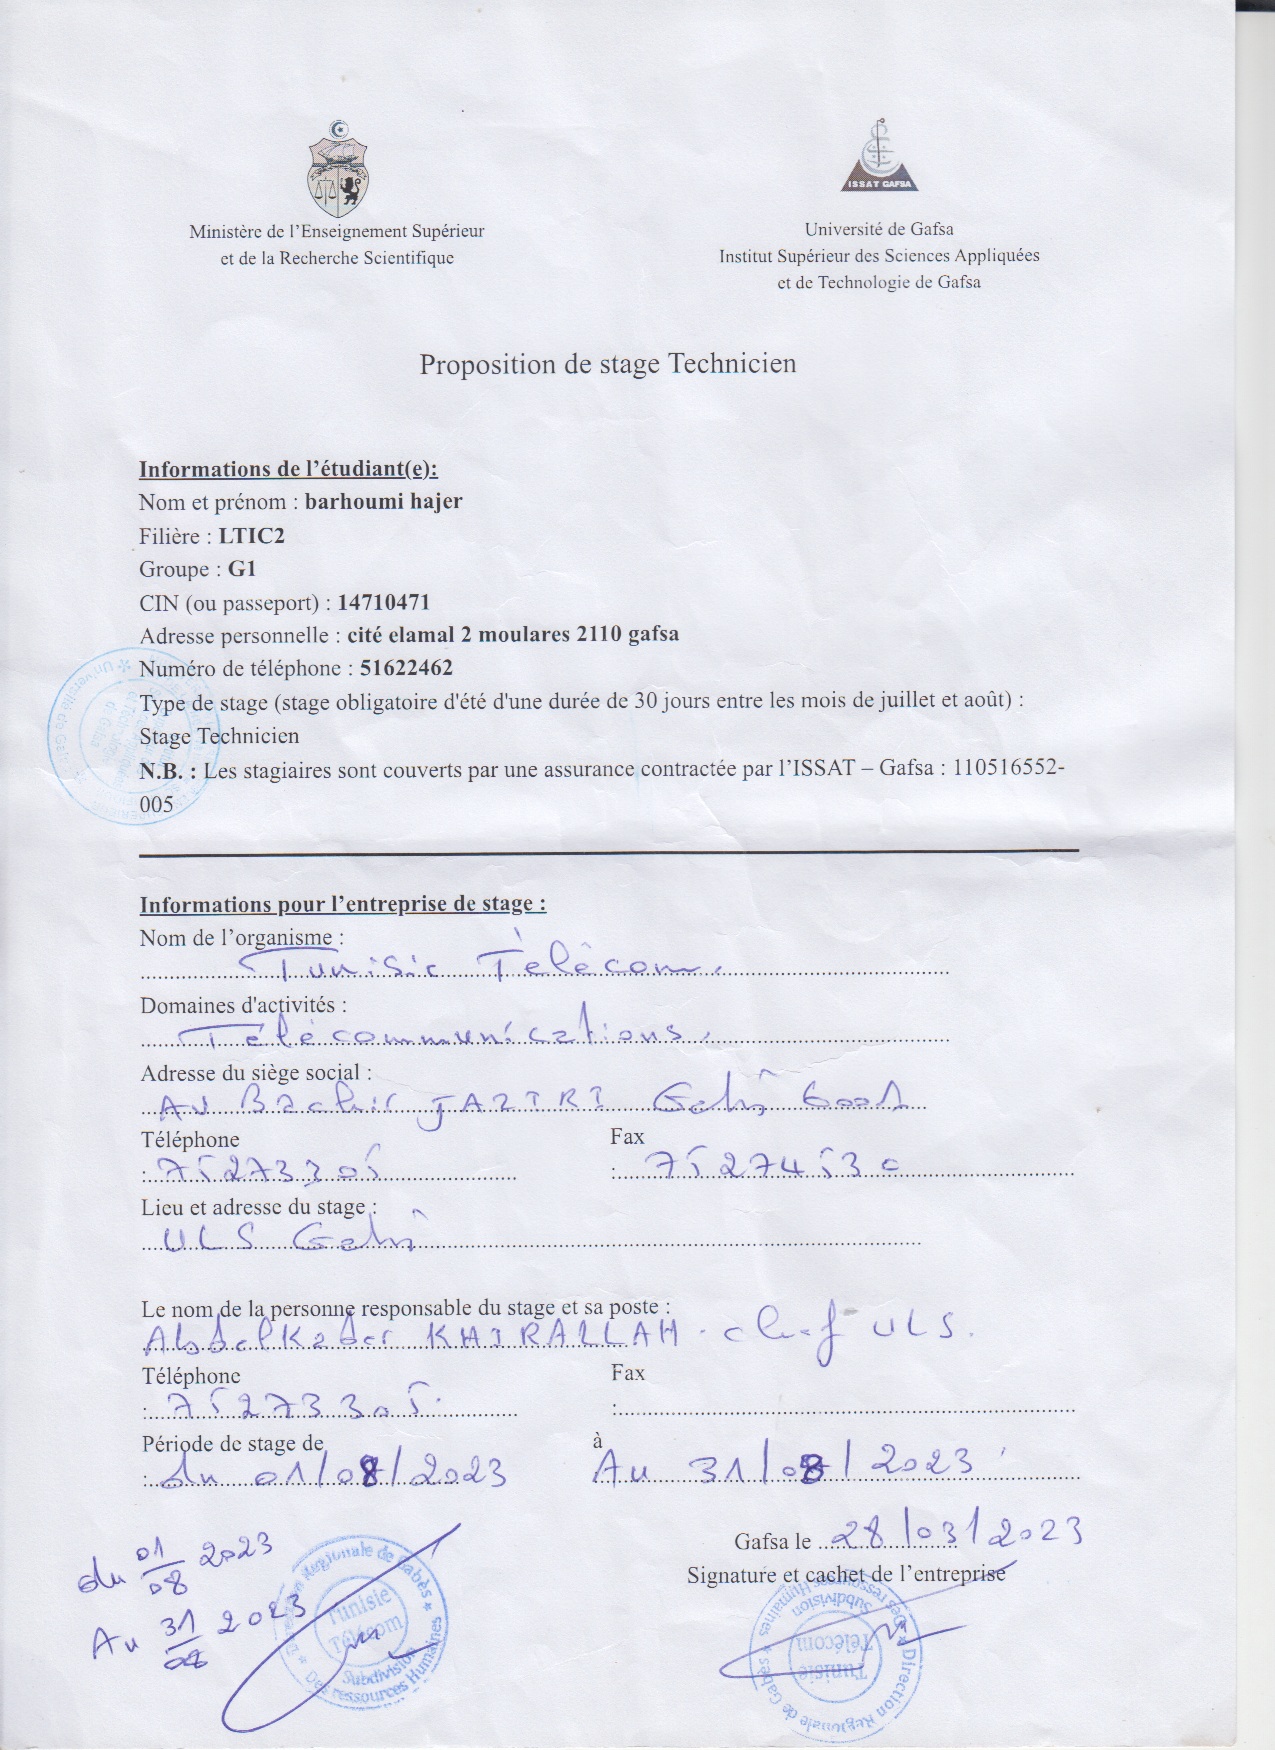 ISSAT GAFSA
Ministère de l'Enseignement Supérieur
et de la Recherche Scientifique
Université de Gafsa
Institut Supérieur des Sciences Appliquées
et de Technologie de Gafsa
Proposition de stage Technicien
Informations de l'étudiant(e):
Nom et prénom : barhoumi hajer
Filière : LTIC2
Groupe : G1
CIN (ou passeport) : 14710471
Adresse personnelle : cité elamal 2 moulares 2110 gafsa
Numéro de téléphone : 51622462
Type de stage (stage obligatoire d'été d'une durée de 30 jours entre les mois de juillet et août) :
Stage Technicien
N.B. : Les stagiaires sont couverts par une assurance contractée par l'ISSAT – Gafsa : 110516552-
005
Informations pour l'entreprise de stage :
Nom de l'organisme :
Tunisie Télécom
Domaines d'activités :
Télécommunications
Adresse du siège social :
AV Bachir JAZIRI Gabès 6001
Téléphone Fax
: 75273305 : 75274530
Lieu et adresse du stage :
ULS Gabès
Le nom de la personne responsable du stage et sa poste :
AbdelKader KHIRALLAH. chef ULS.
Téléphone Fax
: 75273305 :
Période de stage de à
: du 01/08/2023 Au 31/08/2023
Gafsa le 28/03/2023
Signature et cachet de l'entreprise
du 01/08 2023
Au 31/08 2023
Direction Régionale de Gabès
Tunisie
Télécom
Subdivision
Des ressources Humaines
Direction Régionale de Gabès
Tunisie
Télécom
Subdivision
Des ressources Humaines